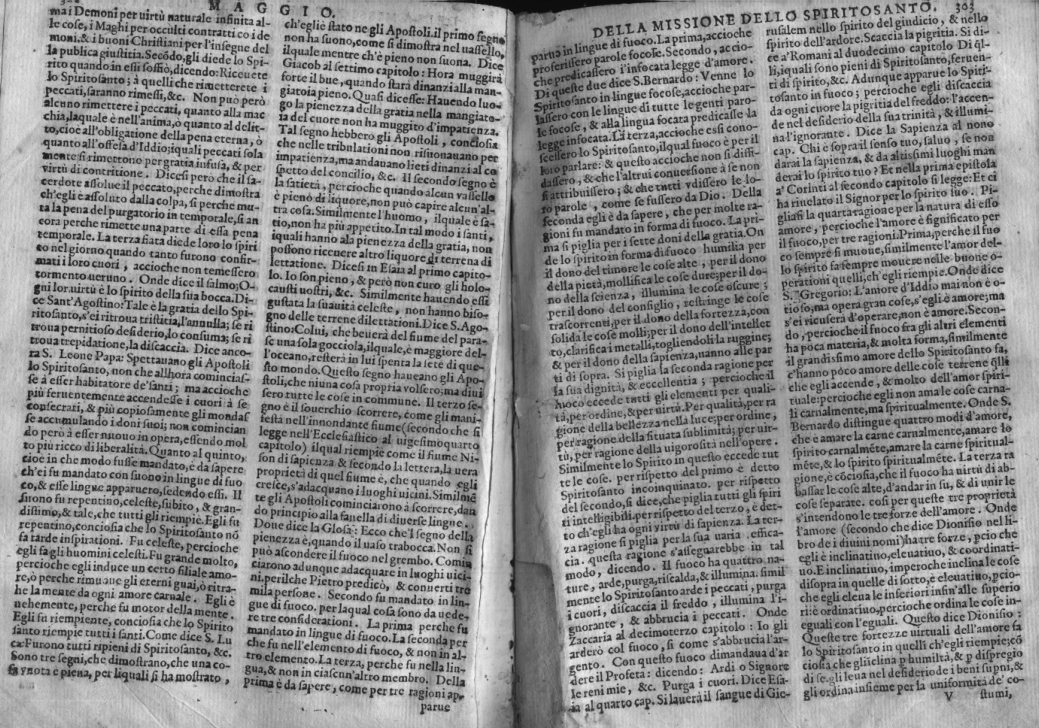 MAGGIO.
ma i Demoni per virtù naturale infinita al-
le cose, i Maghi per occulti contratti co i de
moni, & i buoni Christiani per l'insegne del
la publica giustitia. Secōdo, gli diede lo Spi-
rito quando in essi soffiò, dicendo: Riceuete
lo Spiritosanto; à quelli che rimetterete i
peccati, saranno rimessi, &c. Non può però
alcuno rimettere i peccati, quanto alla mac
chia, laquale è nell'anima, o quanto al delit-
to, cioè all'obligatione della pena eterna, ò
quanto all'offesa d'Iddio; iquali peccati sola
mente si rimettono per gratia infusa, & per
virtù di contritione. Dicesi però che il sa-
cerdote assolue il peccato, perche dimostra
ch'egli è assoluto dalla colpa, si perche mu-
ta la pena del purgatorio in temporale, si an
cora perche rimette una parte di essa pena
temporale. La terza fiata diede loro lo spiri
to nel giorno quando tanto furono confir-
mati i loro cuori, accioche non temessero
tormento ueruno. Onde dice il salmo; O-
gni lor uirtù è lo spirito della sua bocca. Di-
ce Sant'Agostino: Tale è la gratia dello Spi-
ritosanto, s'ei ritroua tristitia, l'annulla; se ri
troua pernitioso desiderio, lo consuma; se ri
troua trepidatione, la discaccia. Dice anco-
ra S. Leone Papa: Spettauano gli Apostoli
lo Spiritosanto, non che allhora cominciaf-
se à esser habitatore de' santi; ma accioche
più feruentemente accendesse i cuori à se
consecrati, & più copiosamente gli mondaf
se accumulando i doni suoi; non comincian
do però à esser nuouo in opera, essendo mol
to più ricco di liberalità. Quanto al quinto,
cioè in che modo fusse mandato, è da sapere
ch'ei fu mandato con suono in lingue di fuo
co, & esse lingue apparuero, sedendo essi. Il
suono fu repentino, celeste, subito, & gran-
dissimo, & tale, che tutti gli riempie. Egli fu
repentino, conciosia che lo Spiritosanto nō
sa tarde inspirationi. Fu celeste, percioche
egli fa gli huomini celesti. Fu grande molto,
percioche egli induce un certo filiale amo-
re, ò perche rimuoue gli eterni guai, ò ritra-
he la mente da ogni amore carnale. Egli è
uehemente, perche fu motor della mente.
Egli fu riempiente, conciosia che lo Spirito
santo riempie tutti i santi. Come dice S. Lu
ca: Furono tutti ripieni di Spiritosanto, &c.
Sono tre segni, che dimostrano, che una co-
sa uota è piena, per liquali si ha mostrato,
ch'egli è stato ne gli Apostoli. il primo segno
non ha suono, come si dimostra nel uasello,
ilquale mentre ch'è pieno non suona. Dice
Giacob al settimo capitolo: Hora muggirà
forte il bue, quando starà dinanzi alla man-
giatoia pieno. Quasi dicesse: Hauendo luo-
go la pienezza della gratia nella mangiato-
ia del cuore non ha muggito d'impatienza.
Tal segno hebbero gli Apostoli, conciosia
che nelle tribulationi non risuonauano per
impatienza, ma andauano lieti dinanzi al co
spetto del concilio, &c. Il secondo segno è
la satietà, percioche quando alcun vasello
è pieno di liquore, non può capire alcun'al-
tra cosa. Similmente l'huomo, ilquale è sa-
tio, non ha più appetito. In tal modo i santi,
iquali hanno la pienezza della gratia, non
possono riceuere altro liquore di terrena di-
lettatione. Dicesi in Esaia al primo capito-
lo. Io son pieno, & però non curo gli holo-
causti uostri, &c. Similmente hauendo essi
gustata la suauità celeste, non hanno biso-
gno delle terrene dilettationi. Dice S. Ago-
stino: Colui, che beuerà del fiume del para-
se una sola gocciola, ilquale, è maggiore del-
l'oceano, resterà in lui spenta la sete di que-
sto mondo. Questo segno haueano gli Apo-
stoli, che niuna cosa propria volsero; ma diui
sero tutte le cose in commune. Il terzo se-
gno è il souerchio scorrere, come gli mani-
festa nell'innondante fiume (secondo che si
legge nell'Ecclesiastico al uigesimoquarto
capitolo) ilqual riempie come il fiume Ni-
son di sapienza & secondo la lettera, la uera
proprietà di quel fiume è, che quando egli
cresce, s'adacquano i luoghi uicini. Similmē
te gli Apostoli cominciarono à scorrere, dan
do principio alla fauella di diuerse lingue.
Doue dice la Glosa: Ecco che'l segno della
pienezza è, quando il uaso trabocca. Non si
può ascondere il fuoco nel grembo. Comin
ciarono adunque adacquare in luoghi uici-
ni. perilche Pietro predicò, & conuertì tre
mila persone. Secondo fu mandato in lin-
gue di fuoco. per laqual cosa sono da uede-
re tre considerationi. La prima perche fu
mandato in lingue di fuoco. La seconda per
che fu nell'elemento di fuoco, & non in al-
tro elemento. La terza, perche fu nella lin-
gua, & non in ciascun'altro membro. Della
prima è da sapere, come per tre ragioni ap-
parue
DELLA MISSIONE DELLO SPIRITOSANTO. 303
parua in lingue di fuoco. La prima, accioche
proferissero parole focose. Secondo, accio-
che predicassero l'infocata legge d'amore.
Di queste due dice S. Bernardo: Venne lo
Spiritosanto in lingue focose, accioche par-
lassero con le lingue di tutte le genti paro-
le focose, & alla lingua focata predicasse la
legge infocata. La terza, accioche essi cono-
scessero lo Spiritosanto, ilqual fuoco è per il
loro parlare: & questo accioche non si diffi-
dassero, & che l'altrui conuersione à se non
si attribuissero; & che tutti vdissero le lo-
ro parole, come se fussero da Dio. Della
seconda egli è da sapere, che per molte ra-
gioni fu mandato in forma di fuoco. La pri-
ma si piglia per i sette doni della gratia. On
de lo spirito in forma di fuoco humilia per
il dono del timore le cose alte, per il dono
della pietà, mollifica le cose dure; per il do-
no della scienza, illumina le cose oscure;
per il dono del consiglio, restringe le cose
trascorrenti; per il dono della fortezza, con
solida le cose molli; per il dono dell'intellet
to, clarifica i metalli, togliendoli la ruggine;
& per il dono della sapienza, uanno alle par
ti di sopra. Si piglia la seconda ragione per
la sua dignità, & eccellentia; percioche il
fuoco eccede tutti gli elementi per quali-
tà, per ordine, & per uirtù. Per qualità, per ra
gione della bellezza nella luce; per ordine,
per ragione della situata sublimità; per uir-
tù, per ragione della uigorosità nell'opere.
Similmente lo Spirito in questo eccede tut
te le cose. per rispetto del primo è detto
Spiritosanto incoinquinato. per rispetto
del secondo, si dice, che piglia tutti gli spiri
ti intelligibili. per rispetto del terzo, è det-
to ch'egli ha ogni virtù di sapienza. La ter-
za ragione si piglia per la sua uaria efficac-
cia. questa ragione s'assegnarebbe in tal
modo, dicendo. Il fuoco ha quattro na-
ture, arde, purga, riscalda, & illumina. simil
mente lo Spiritosanto arde i peccati, purga
i cuori, discaccia il freddo, illumina l'i-
gnorante, & abbrucia i peccati. Onde
Zaccaria al decimoterzo capitolo: Io gli
arderò col fuoco, si come s'abbrucia l'ar-
gento. Con questo fuoco dimandaua d'ar
dere il Profeta: dicendo: Ardi o Signore
le reni mie, &c. Purga i cuori. Dice Esa-
ia al quarto cap. Si lauerà il sangue di Gie-
rusalem nello spirito del giudicio, & nello
spirito dell'ardore. Scaccia la pigritia. Si di-
ce a' Romani al duodecimo capitolo Di ql-
li, iquali sono pieni di Spiritosanto, feruen-
ti di spirito, &c. Adunque apparue lo Spiri-
tosanto in fuoco; percioche egli discaccia
da ogni cuore la pigritia del freddo: l'accen-
de nel desiderio della sua trinità, & illumi-
na l'ignorante. Dice la Sapienza al nono
cap. Chi è sopra il senso tuo, saluo, se non
darai la sapienza, & da altissimi luoghi man
derai lo spirito tuo? Et nella prima epistola
a' Corinti al secondo capitolo si legge: Et ci
ha riuelato il Signor per lo spirito suo. Pi-
gliasi la quarta ragione per la natura di esso
amore, percioche l'amore è significato per
il fuoco, per tre ragioni. Prima, perche il fuo
co sempre si muoue, similmente l'amor del-
lo spirito fa sempre mouere nelle buone o-
perationi quelli, ch'egli riempie. Onde dice
S. Gregorio: L'amore d'Iddio mai non è o-
tioso, ma opera gran cose, s'egli è amore; ma
s'ei ricuserà d'operare, non è amore. Secon-
do, percioche il fuoco fra gli altri elementi
ha poca materia, & molta forma, similmente
il grandissimo amore dello Spiritosanto fa,
c'hanno poco amore delle cose terrene quelli
che egli accende, & molto dell'amor spiri-
tuale: percioche egli non ama le cose carna-
li carnalmente, ma spiritualmente. Onde S.
Bernardo distingue quattro modi d'amore,
che è amare la carne carnalmente, amare lo
spirito carnalmēte, amare la carne spiritual-
mēte, & lo spirito spiritualmēte. La terza ra
gione, è cōciosia, che il fuoco ha uirtù di ab-
bassar le cose alte, d'andar in su, & di unir le
cose separate. così per queste tre proprietà
s'intendono le tre forze dell'amore. Onde
l'amore (secondo che dice Dionisio nel li-
bro de i diuini nomi) ha tre forze, pcio che
egli è inclinatiuo, eleuatiuo, & coordinati-
uo. E inclinatiuo, imperoche inclina le cose
disopra in quelle di sotto, è eleuatiuo, pcio-
che egli eleua le inferiori infin'alle superio
ri: è ordinatiuo, percioche ordina le cose in-
eguali con l'eguali. Questo dice Dionisio:
Queste tre fortezze uirtuali dell'amore fa
lo Spiritosanto in quelli ch'egli riempie; cō
ciosia che gli inclina p humiltà, & p dispregio
di se. gli leua nel desiderio de i beni supni, &
gli ordina insieme per la uniformità de' co-
V stumi,